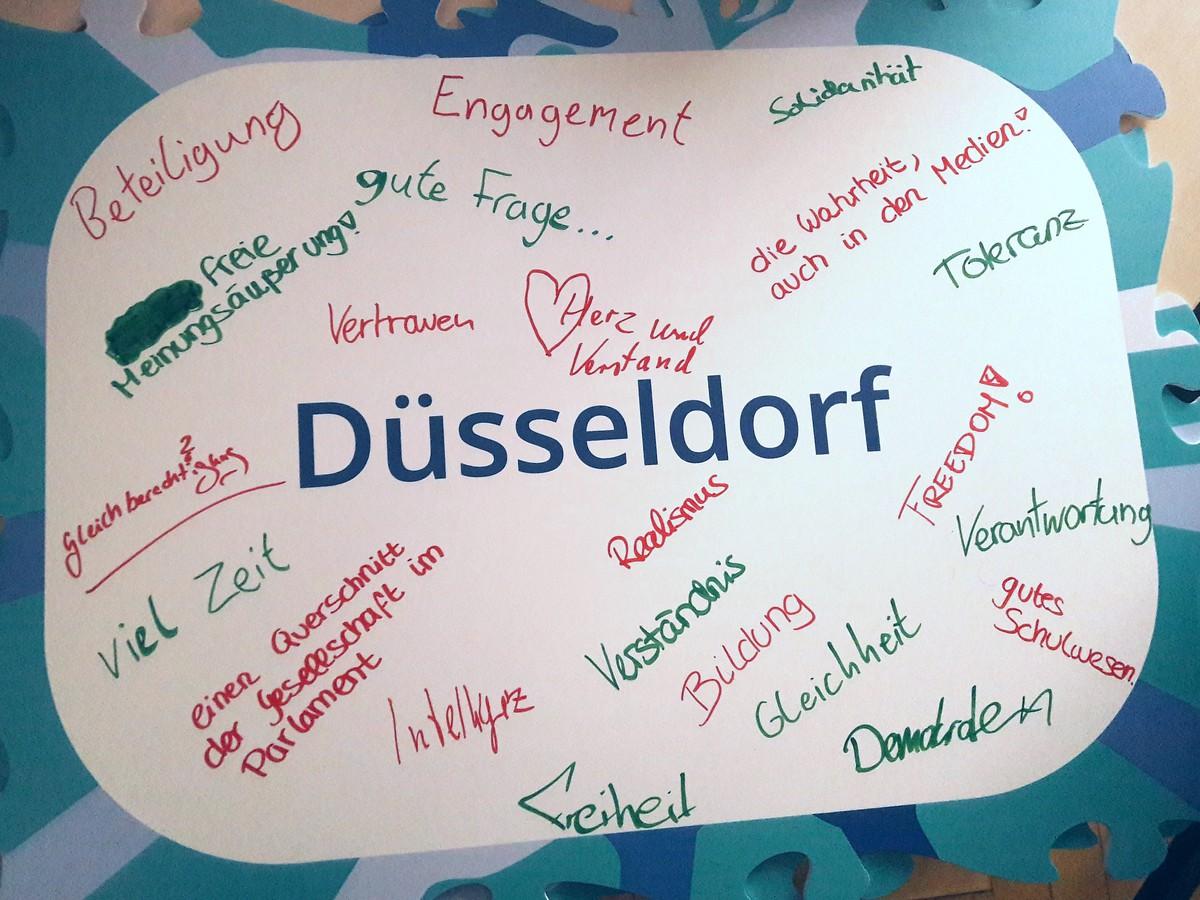 Engagement
Solidarität
Beteiligung
gute Frage...
die Wahrheit,
auch in den Medien!
freie
Meinungsäußerung!
Toleranz
Vertrauen
Herz und
Verstand
Düsseldorf
FREEDOM!
Gleichberechtigung
?
Realismus
Verantwortung
viel Zeit
einen Querschnitt
der Gesellschaft im
Parlament
Verständnis
Bildung
gutes
Schulwesen
Gleichheit
Intelligenz
Freiheit